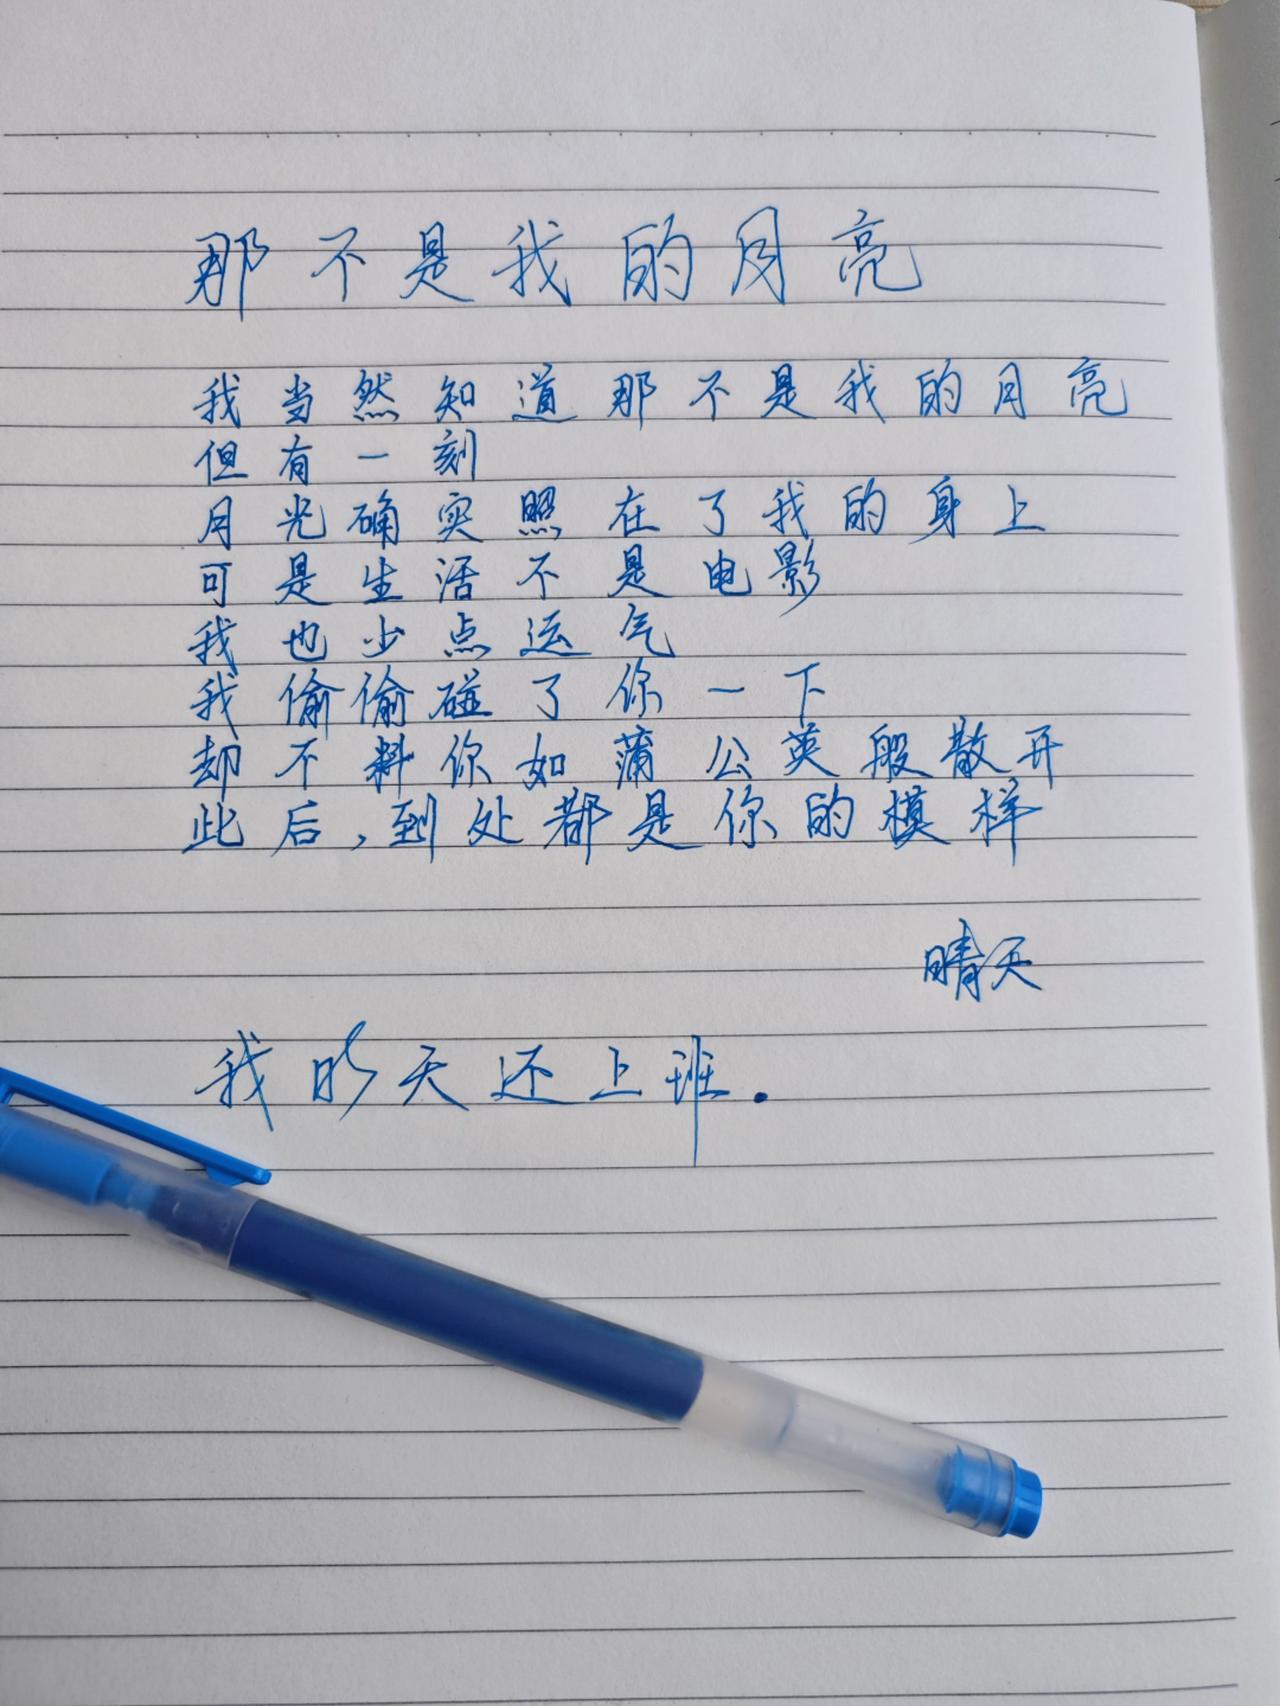 那不是我的月亮
我当然知道那不是我的月亮
但有一刻
月光确实照在了我的身上
可是生活不是电影
我也少点运气
我偷偷碰了你一下
却不料你如蒲公英般散开
此后,到处都是你的模样
晴天
我昨天还上班.